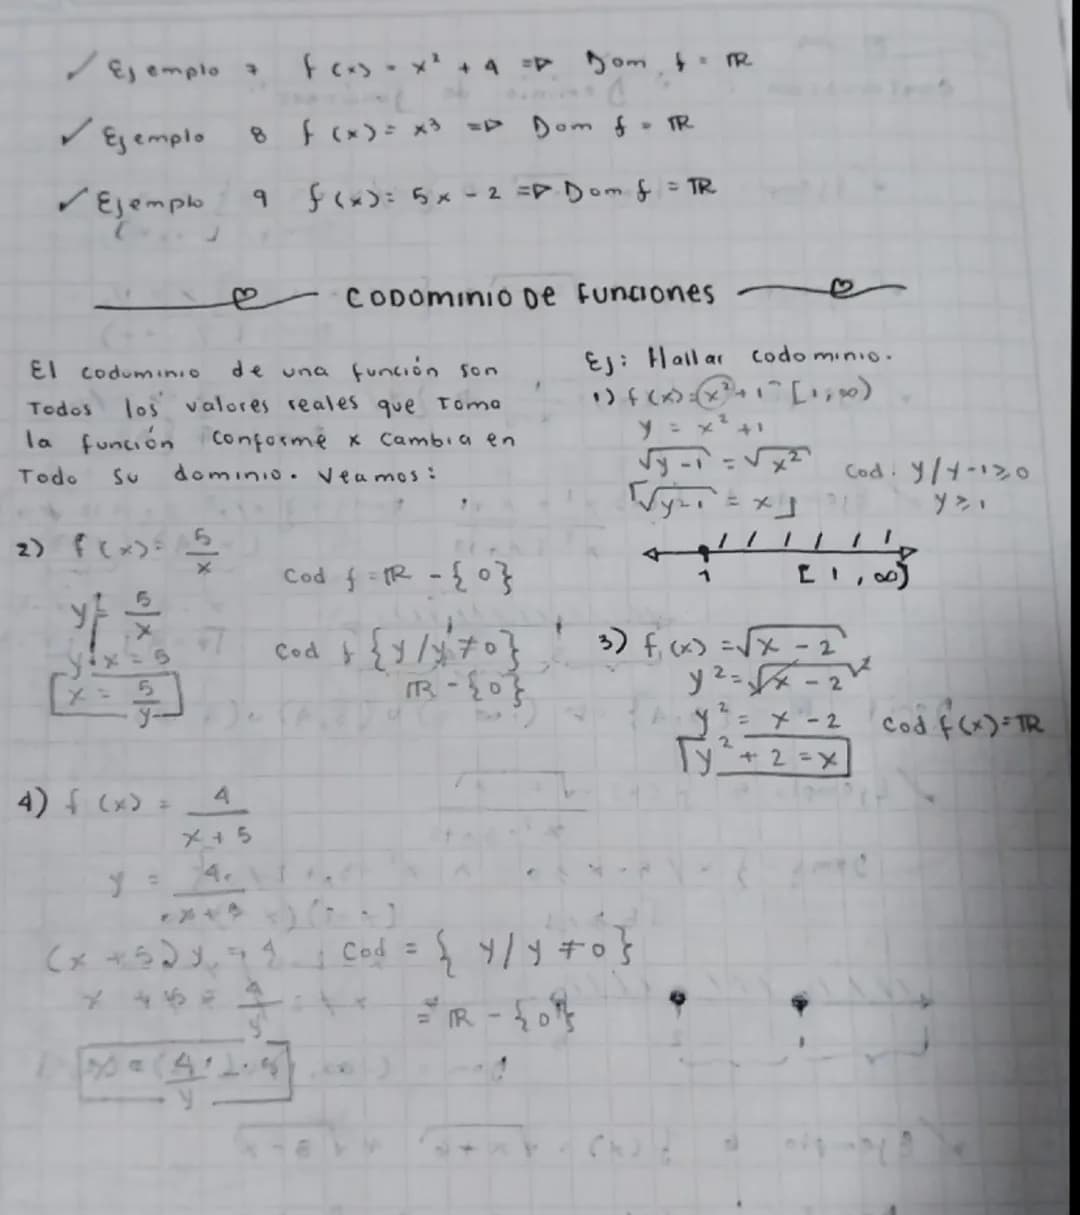 ✓ Ejemplo 7 f(x) = x² + 4 => Dom f = IR
✓ Ejemplo 8 f(x) = x³ => Dom f = IR
✓ Ejemplo 9 f(x) = 5x - 2 => Dom f = IR
CODOMINIO DE FUNCIONES
El codominio de una función son
Todos los valores reales que Toma
la función conforme x cambia en
Todo su dominio. Veamos:
Ej: Hallar codominio.
1) f(x) = x² + 1 [1, ∞)
y = x² + 1
√y - 1 = √x²
√y - 1 = x
Cod. y/y-1≥0
y≥1
1 [1, ∞)
2) f(x) = 5/x
y = 5/x
y . x = 5
x = 5/y
Cod f = IR - {0}
Cod f {y/y≠0}
IR - {0}
3) f(x) = √x - 2
y² = √x - 2²
y² = x - 2
y² + 2 = x
Cod f(x) = IR
4) f(x) = 4/x + 5
y = 4/x + 5
(x + 5) y = 4
x + 5 = 4/y
Cod = {y/y ≠ 0}
= IR - {0}